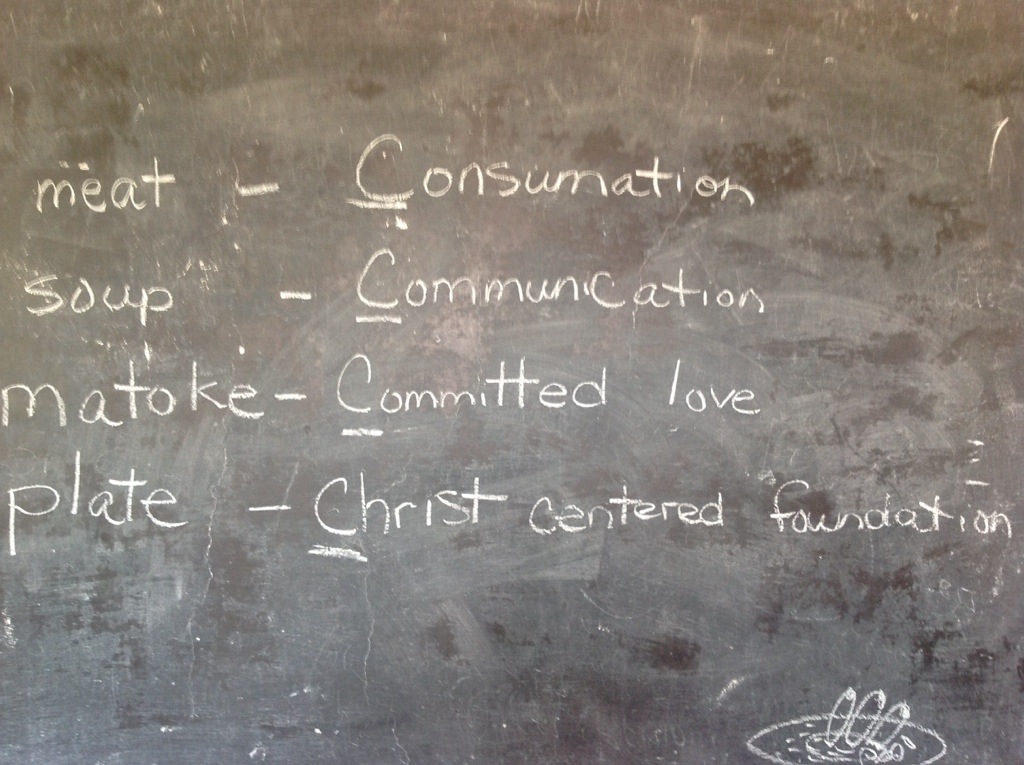 meat - Consumation
soup - Communication
matoke - Committed love
plate - Christ centered foundation